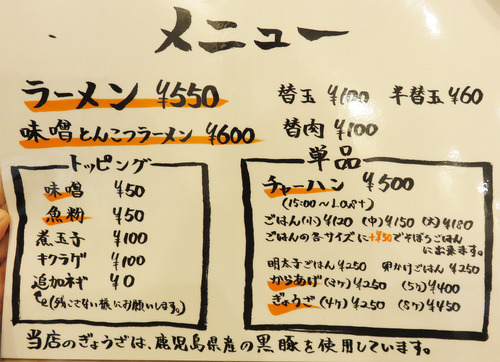 メニュー
ラーメン ¥550 替玉 ¥100 半替玉 ¥60
味噌とんこつラーメン ¥600 替肉 ¥100
トッピング
味噌 ¥50
魚粉 ¥50
煮玉子 ¥100
キクラゲ ¥100
追加ネギ ¥0
(残さない様にお願いします。)
単品
チャーハン ¥500
(15:00〜Last)
ごはん(小)¥120 (中)¥150 (大)¥180
ごはんの各サイズに+¥50でそぼろごはん
に出来ます。
明太子ごはん ¥250 卵かけごはん ¥250
からあげ (3ケ) ¥250 (5ケ) ¥400
ぎょうざ (4ケ) ¥250 (8ケ) ¥450
当店のぎょうざは、鹿児島県産の黒豚を使用しています。